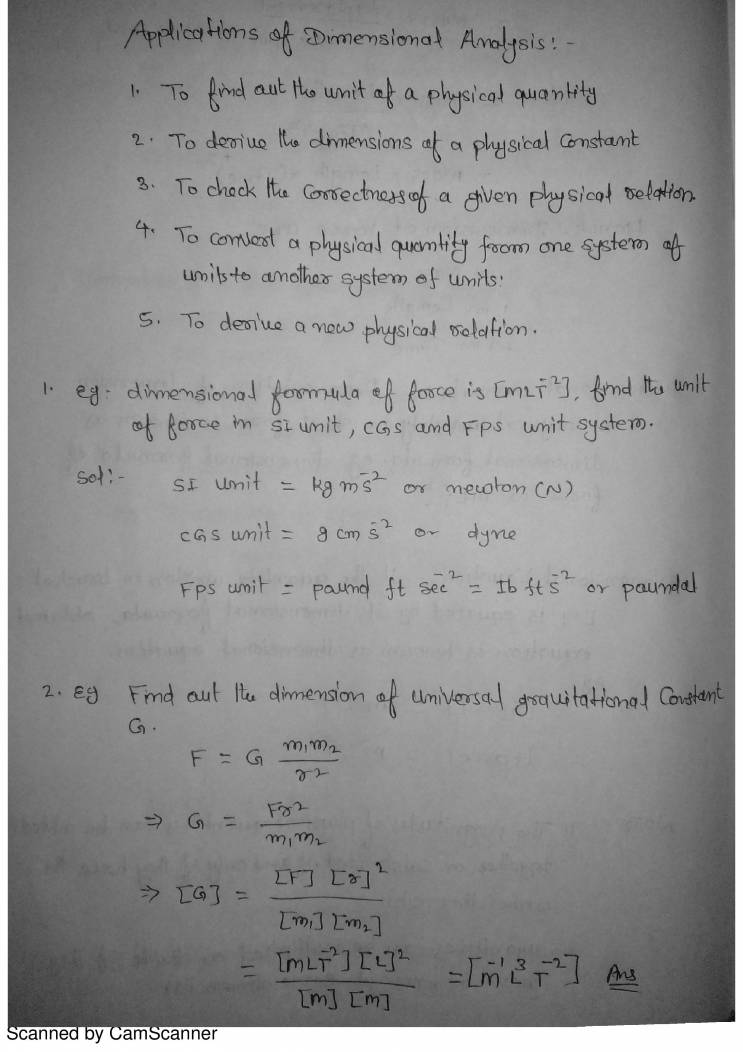 Applications of Dimensional Analysis:-
1. To find out the unit of a physical quantity
2. To derive the dimensions of a physical Constant
3. To check the Correctness of a given physical relation.
4. To convert a physical quantity from one system of
units to another system of units.
5. To derive a new physical relation.
1. eg:- dimensional formula of force is [MLT⁻²], find the unit
of force in SI unit, CGS and FPS unit system.
Sol:- SI unit = kg ms⁻² or newton (N)
CGS unit = g cm s⁻² or dyne
FPS unit = pound ft sec⁻² = lb ft s⁻² or poundal
2. Eg Find out the dimension of universal gravitational Constant
G.
F = G m₁m₂ / r²
⇒ G = Fr² / m₁m₂
⇒ [G] = [F] [r]² / [m₁] [m₂]
= [MLT⁻²] [L]² / [M] [M] = [M⁻¹ L³ T⁻²] Ans
Scanned by CamScanner